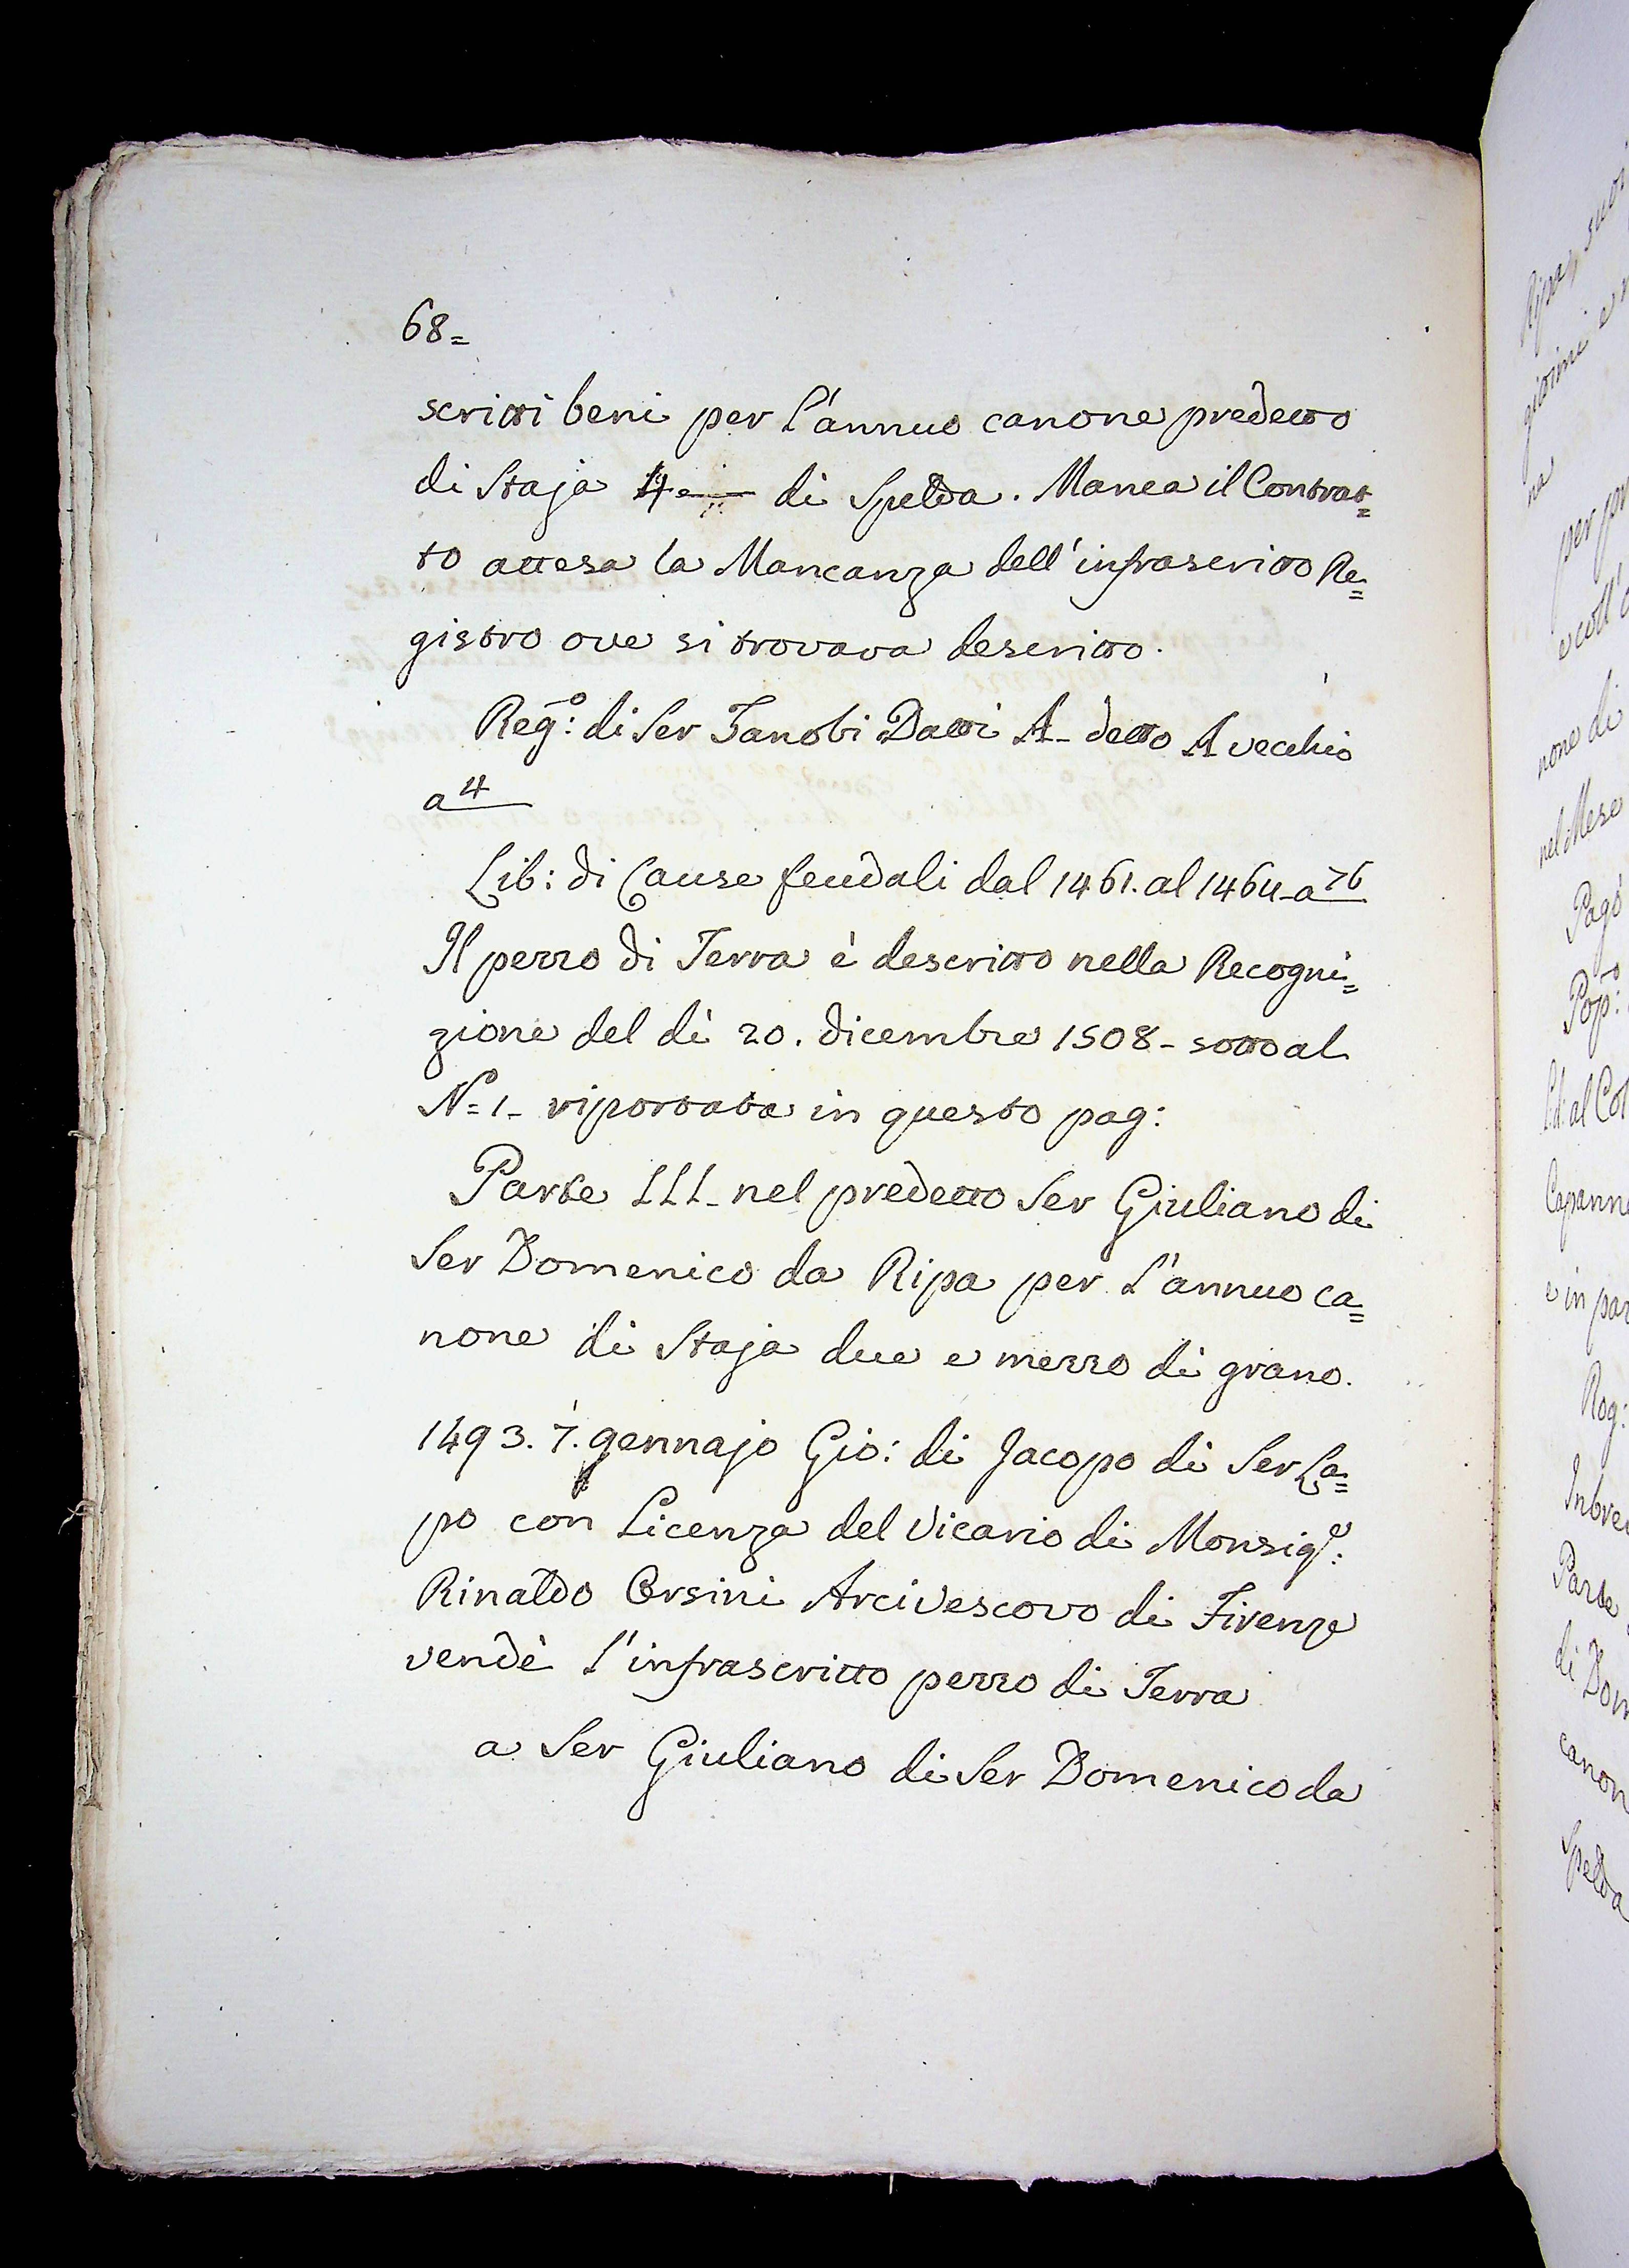 68=
scritti beni per l'annuo canone predetto
di Staja 4 di Spelda. Manca il Contrat=
to attesa la Mancanza dell'infrascritto Re=
gistro ove si trovava descritto.
Reg.º: di Ser Zanobi Datti A- detto A vecchio
a 4
Lib: di Cause feudali dal 1461. al 1464-a 76
Il pezzo di Terra è descritto nella Recogni=
zione del dì 20. dicembre 1508- sotto al
Nº=1- riportata in questo pag:
Parte III- nel predetto Ser Giuliano di
Ser Domenico da Ripa per l'annuo ca=
none di Staja due e mezzo di grano.
1493. 7. gennajo Gio: di Jacopo di Ser La=
po con Licenza del Vicario di Monsig.e:
Rinaldo Orsini Arcivescovo di Firenze
vendè l'infrascritto pezzo di Terra
a Ser Giuliano di Ser Domenico da
Ripa, suoi
na
none di
nel Mese
Pagò
Pop.º:
e in par
Rog:
Parte
di Dom
canon
Spelda